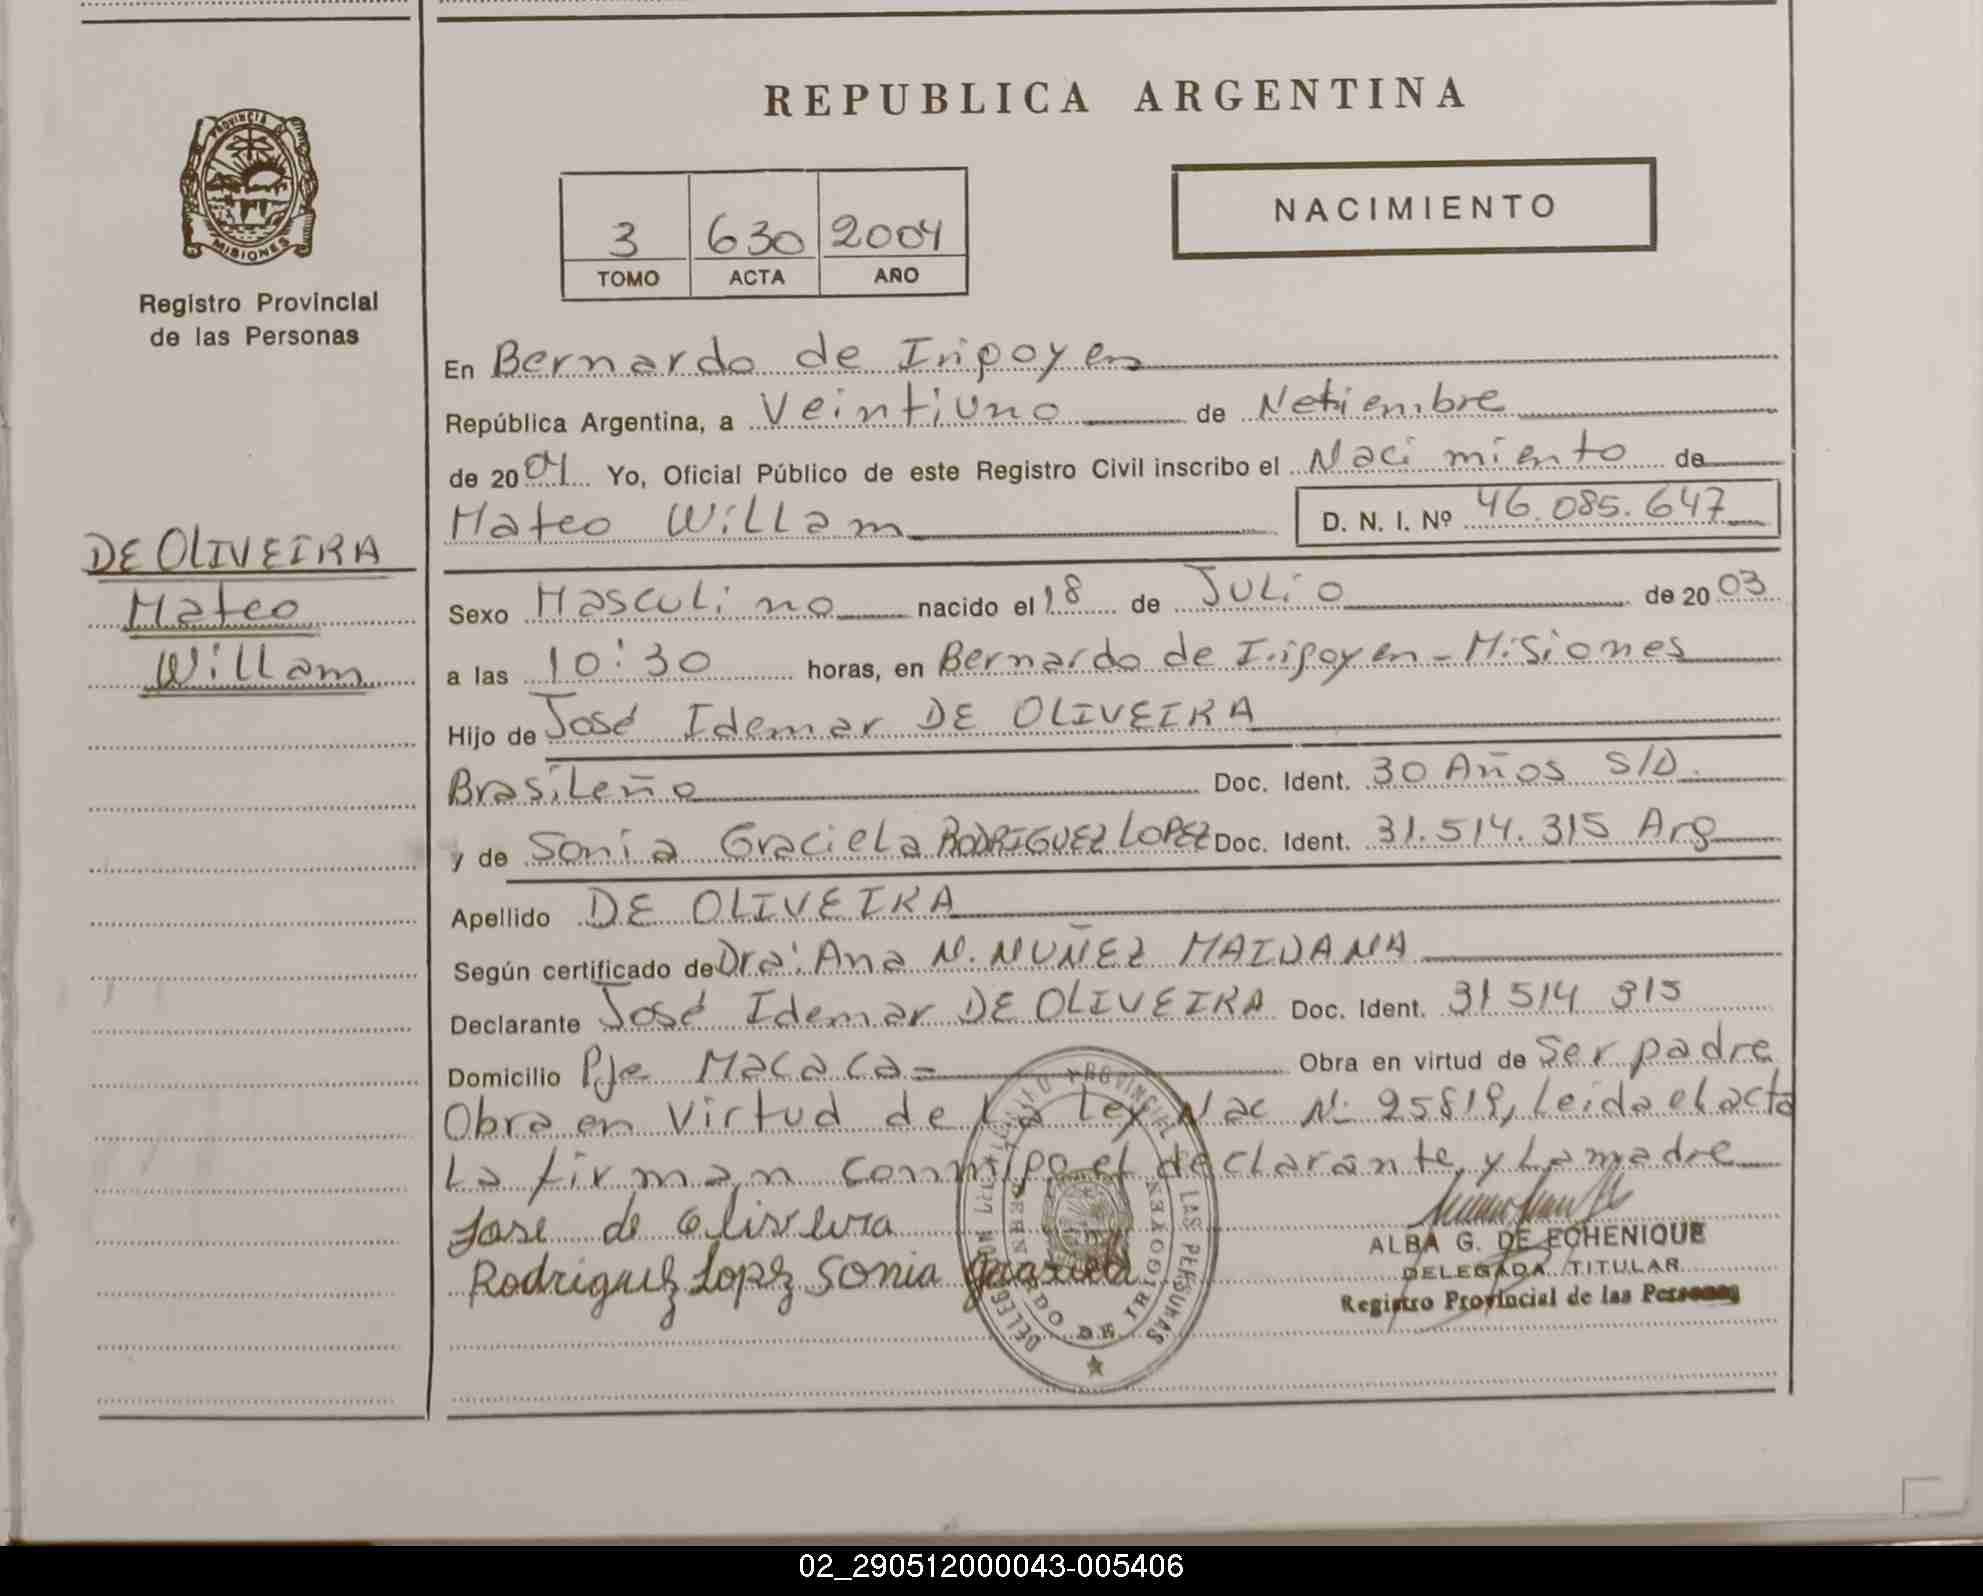 REPUBLICA ARGENTINA
PROVINCIA DE
MISIONES
Registro Provincial
de las Personas
3 630 2004
TOMO ACTA AÑO
NACIMIENTO
DE OLIVEIRA
Mateo
Willam
En Bernardo de Irigoyen
República Argentina, a Veintiuno de Setiembre
de 2004 Yo, Oficial Público de este Registro Civil inscribo el Nacimiento de
Mateo Willam D. N. I. Nº 46.085.647
Sexo Masculino nacido el 18 de Julio de 2003
a las 10:30 horas, en Bernardo de Irigoyen - Misiones
Hijo de José Idemar DE OLIVEIRA
Brasileño Doc. Ident. 30 Años S/D.
y de Sonia Graciela RODRIGUEZ LOPEZ Doc. Ident. 31.514.315 Arg
Apellido DE OLIVEIRA
Según certificado de Dra: Ana N. NUÑEZ MAIDANA
Declarante José Idemar DE OLIVEIRA Doc. Ident. 31 514 315
Domicilio Pje Macaca = Obra en virtud de Ser padre
Obra en Virtud de La Ley Nac Nº 25819, Leida el acta
La firman conmigo el declarante y La madre
Jose de Oliveira
Rodriguez Lopez Sonia Graciela
REGISTRO PROVINCIAL DE LAS PERSONAS
BERNARDO DE IRIGOYEN
ALBA G. DE ECHENIQUE
DELEGADA TITULAR
Registro Provincial de las Personas
02_290512000043-005406